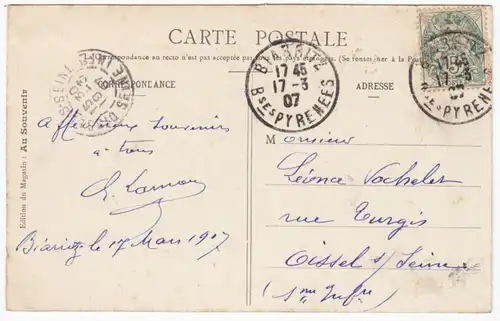 CARTE POSTALE
La Correspondance au recto n'est pas acceptée par tous pays étrangers. (Se renseigner à la Poste)
CORRESPONDANCE
ADRESSE
BIARRITZ
17 45
17 - 3
07
BSES PYRENEES
17 45
17 - 3
07
BSES PYRENEES
Edition du Magasin : Au Souvenir
Affectueux souvenirs
a tous
Biarritz le 17 Mars 1907
Monsieur
Léonce Vochelet
rue Turgis
Oissel s/ Seine
(Sne Infre)